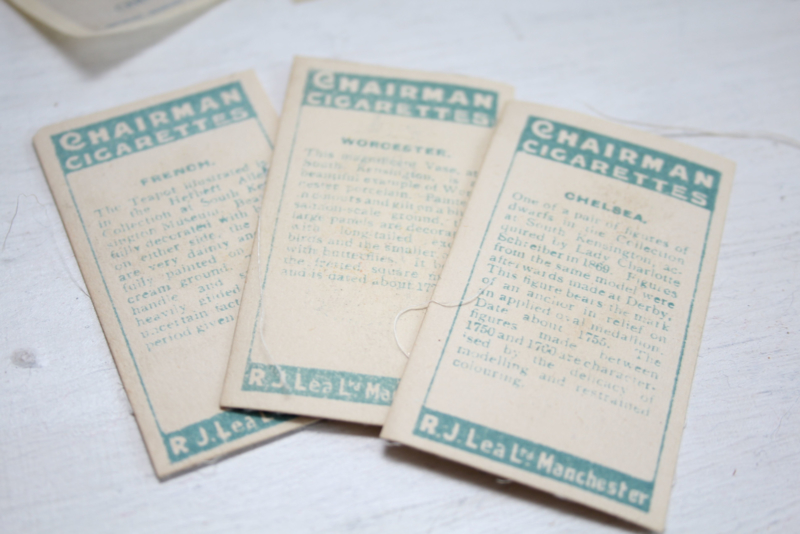 CHAIRMAN
CIGARETTES
FRENCH.
The Teapot illustrated is
in the Herbert Allen
Collection at South Ken-
sington Museum.
fully decorated with
on either side, the
are very dainty and
fully painted on
cream ground.
handle and
heavily gilded
uncertain
period given
R.J. Lea
CHAIRMAN
CIGARETTES
WORCESTER.
This magnificent Vase, at
South Kensington, is a
beautiful example of Wor-
cester porcelain. Painted
in colours and gilt on a blue
salmon-scale ground,
large panels are decorated
with long-tailed
birds and the smaller
with butterflies.
the seal,
and is dated about
R.J. Lea Ltd Ma
CHAIRMAN
CIGARETTES
CHELSEA.
One of a pair of figures of
dwarfs in the Collection
at South Kensington, ac-
quired by Lady Charlotte
Schreiber in 1869. Figures
from the same model were
afterwards made at Derby.
This figure bears the mark
of an anchor in relief on
an applied oval medallion.
Date about 1755. The
figures made between
1750 and 1760 are character-
ised by the delicacy of
modelling and restrained
colouring.
R.J. Lea Ltd Manchester